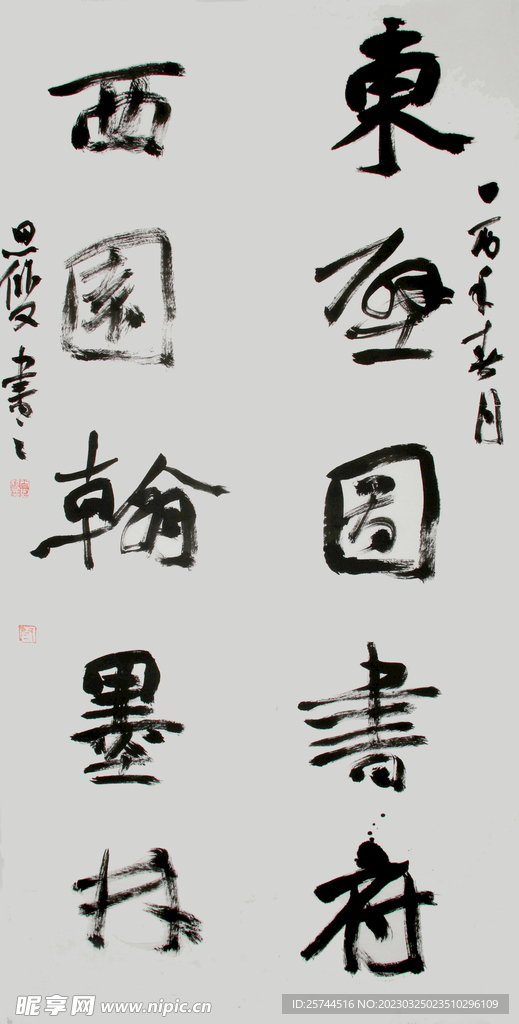 東壁圖書府
春月
西園翰墨林
書之
昵享网 www.nipic.cn
ID:25744516 NO:20230325023510296109